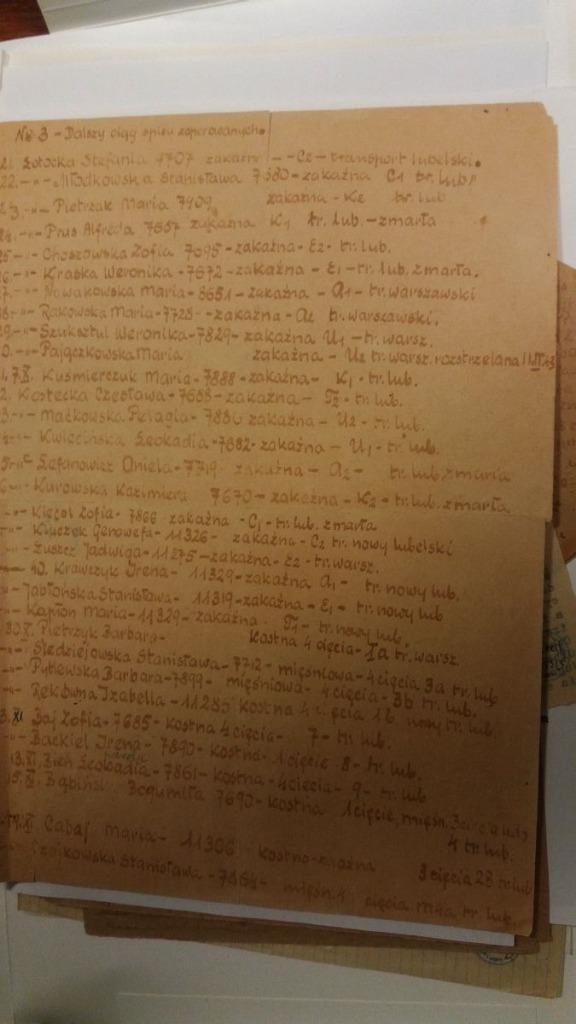 No 3 - Dalszy ciąg spisu zoperowanych.
21. Łotocka Stefania 7707 zakaźn - - C2 - transport lubelski.
22. -"- Młodkowska Stanisława 7680 - zakaźna C1 tr. lub.
23. -"- Pietrzak Maria 7909 zakaźna - K2 tr. lub
24. -"- Prus Alfreda 7657 zakaźna K1 tr. lub. - zmarła
25 -"- Choszowska Zofia 7695 - zakaźna - E2 - tr. lub.
26. -"- Kraska Weronika - 7672 - zakaźna - E1 - tr. lub. zmarła.
27. -"- Nowakowska Maria - 8651 - zakaźna - A1 - tr. warszawski
28 -"- Rakowska Maria - 7725 - zakaźna - A2 tr. warszawski.
29 -"- Szuksztul Weronika - 7829 - zakaźna U1 - tr. warsz.
30. -"- Pajączkowska Maria zakaźna - U2 tr. warsz. rozstrzelana
31. 7.X. Kuśmierczuk Maria - 7888 - zakaźna - K1 - tr. lub.
2. Kostecka Czesława - 7658 - zakaźna - T2 - tr. lub.
3 -"- Maćkowska Pelagia - zakaźna - U2 - tr. lub.
-"- Kwiecińska Leokadia - 7882 - zakaźna - U1 - tr. lub.
5 -"- Lefanowicz Aniela - 7719 - zakaźna - A2 - tr. lub. zmarła
6 -"- Kurowska Kazimiera 7670 - zakaźna - K2 - tr. lub. zmarła
-"- Kiecol Zofia - 7866 zakaźna - C1 - tr. lub. zmarła
-"- Kluczek Genowefa - 11326 - zakaźna - C2 tr. nowy lubelski
-"- Łuszcz Jadwiga - 11275 - zakaźna - E2 - tr. warsz.
40. Krawczyk Irena - 11329 - zakaźna A1 - tr. nowy lub.
-"- Jabłońska Stanisława - 11319 - zakaźna - E1 - tr. nowy lub
-"- Kapłon Maria - 11329 - zakaźna T1 - tr. nowy lub.
30.X. Pietrzyk Barbara - kostna 4 cięcia - Ia tr. warsz.
-"- Śledziejowska Stanisława - 7712 - mięśniowa - 4 cięcia 3a tr. lub
-"- Pytlewska Barbara - 7899 - mięśniowa - 4 cięcia - 3b tr. lub.
-"- Rekówna Izabella - 11285 kostna 4 cięcia 1b nowy tr. lub.
3. XI Baj Zofia - 7685 - kostna 4 cięcia - 7 - tr. lub.
-"- Backiel Irena - 7890 - kostna - 1 cięcie 8 - tr. lub.
13. XI. Bień Leokadia - 7861 - kostna - 4 cięcia - 9 - tr. lub
15. XI. Bąbińska Bogumiła 7690 - kostna 1 cięcie, mięśn.
4 tr. lub.
XI. Cabaj Maria - 11306 kostno-zakaźna 3 cięcia 28 tr. lub
Czajkowska Stanisława - 7864 - mięśn. 4 cięcia tr. lub.